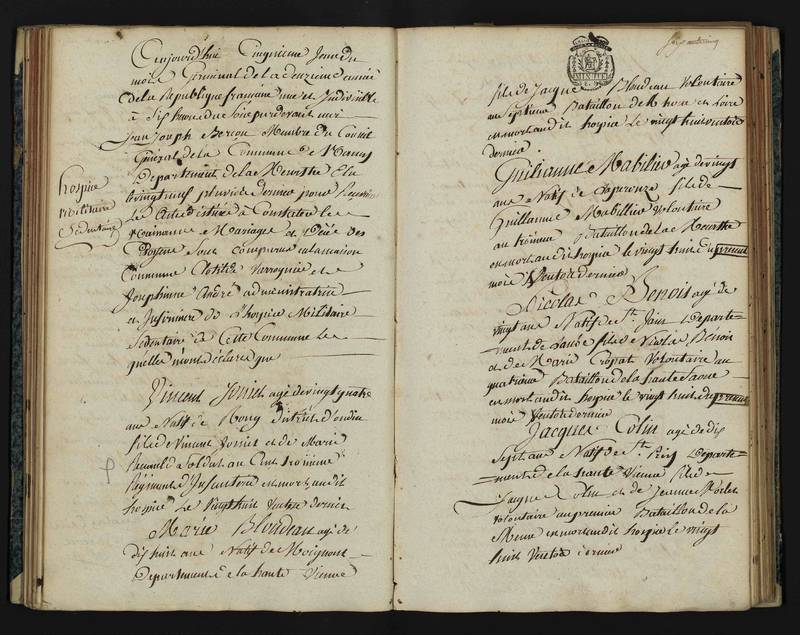 Aujourd'hui Cinquieme Jour du
mois Germinal de la deuxieme année
de la Republique francaine une et Indivisible
à Six heures du Soir par devant moi
Jean Joseph Membre du Conseil
General de la Commune de Nancy
Departement de la Meurthe Elu
le vingt neuf pluviose dernier pour Recevoir
Les Actes destinés à Constater les
Naissances Mariages et Décés des
Citoyens Sont Comparus en la maison
Commune et
Josephinne André administratrice
et Infirmiere de L'hospice Militaire
Sedentaire de Cette Commune Les
quelles m'ont déclaré que
hospice
militaire
Sedentaire
Vincent agé de vingt quatre
ans Natif de District
fils de Vincent et de Marie
Soldat au Cent troisieme
Régiment d'Infanterie est mort audit
hospice Le Vingt huit Ventose dernier
Marie Blondeau agé de
dix huit ans Natif de
Departement de la haute Vienne
fils de Jacque Blondeau Volontaire
au Septieme Bataillon de Rhone et Loire
est mort audit hospice le vingt huit ventose
dernier.
Guillaume Mabilier agé de vingt
ans Natif de fils de
Guillaume Mabillier Volontaire
au troisieme Bataillon de la Meurthe
est mort audit hospice le vingt huit du present
mois Ventose dernier
Nicolas Benois agé de
vingt ans Natif de St. Jean Departe=
ment de fils de Nicolas Bénois
et de Marie Volontaire au
quatrieme Bataillon de la haute Saone
est mort audit hospice le vingt huit du present
mois Ventose dernier
Jacque Colin agé de dix
Sept ans Natif de St. Departe=
ment de la haute Vienne fils de
Jacque Colin et de Jeanne
volontaire au premier Bataillon de la
Meuse est mort audit hospice le vingt
huit Ventose dernier